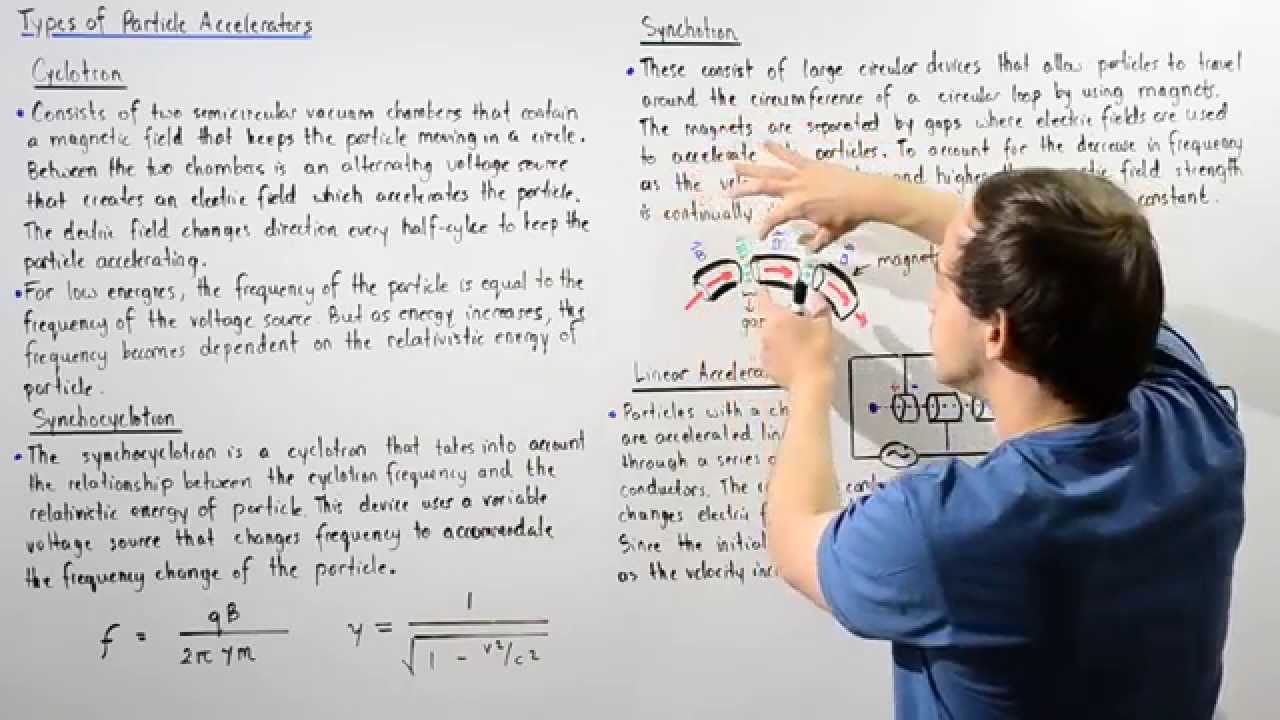 Types of Particle Accelerators
Cyclotron
• Consists of two semicircular vacuum chambers that contain
a magnetic field that keeps the particle moving in a circle.
Between the two chambers is an alternating voltage source
that creates an electric field which accelerates the particle.
The electric field changes direction every half-cylce to keep the
particle accelerating.
• For low energies, the frequency of the particle is equal to the
frequency of the voltage source. But as energy increases, the
frequency becomes dependent on the relativistic energy of
particle.
Synchocyclotron
• The synchocyclotron is a cyclotron that takes into account
the relationship between the cyclotron frequency and the
relativistic energy of particle. This device uses a variable
voltage source that changes frequency to accommendate
the frequency change of the particle.
f = qB / 2π γm
γ = 1 / √(1 - v²/c²)
Synchotron
• These consist of large circular devices that allow particles to travel
around the circumference of a circular loop by using magnets.
The magnets are separated by gaps where electric fields are used
to accelerate particles. To account for the decrease in frequency
as the and higher field strength
is continually constant.
B B
magnet
Linear
• Particles with a
are accelerated
through a series
conductors. The
changes electric
Since the initial
as the velocity
+ -